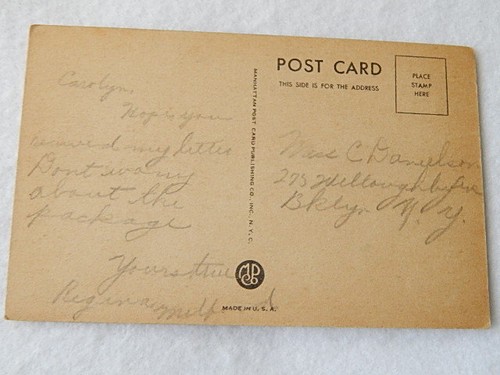 Carolyn,
Hope you
received my letter
Dont worry
about the
package
Yours true
Regina
MANHATTAN POST CARD PUBLISHING CO., INC. N.Y.C.
POST CARD
THIS SIDE IS FOR THE ADDRESS
PLACE
STAMP
HERE
Miss C Danielson
275 Willoughby Ave
Bklyn N.Y.
MADE IN U.S.A.